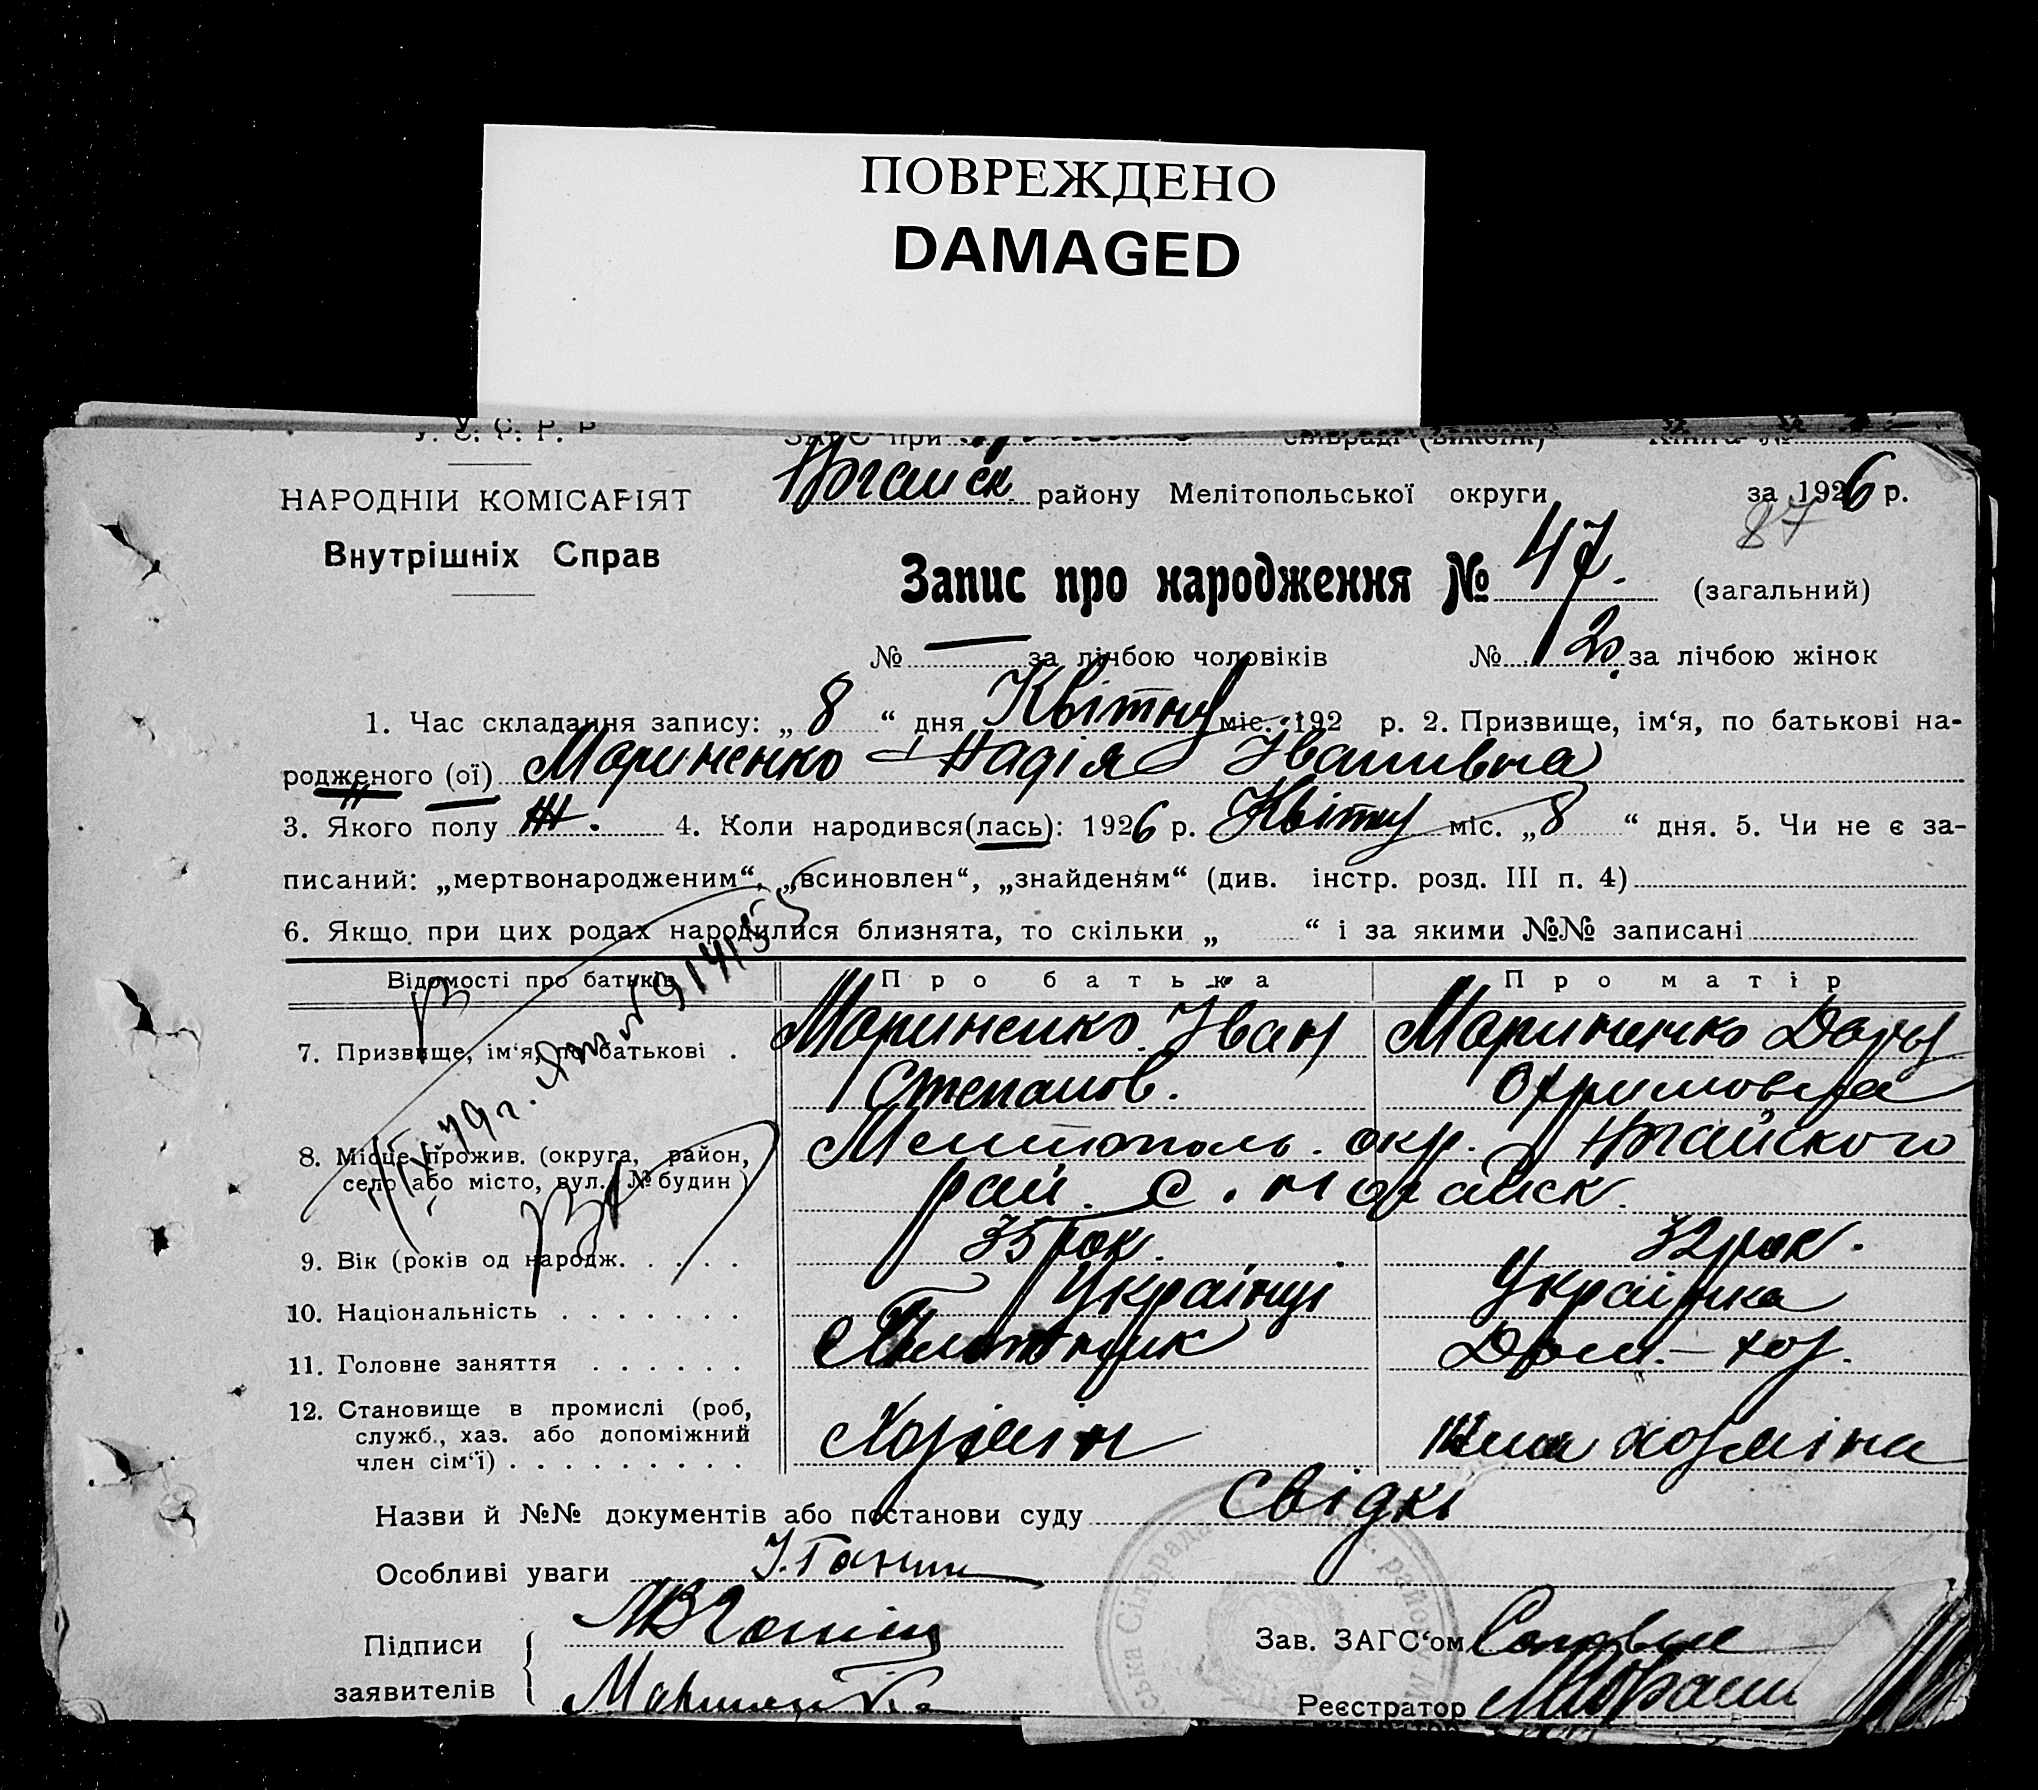 ПОВРЕЖДЕНО
DAMAGED
У. С. Р. Р.
ЗАГС при
НАРОДНІЙ КОМІСАРІЯТ
Внутрішніх Справ
Ногайск району Мелітопольської округи за 1926 р.
87
Запис про народження № 47. (загальний)
№ — за лічбою чоловіків № 20. за лічбою жінок
1. Час складання запису: „ 8 “ дня Квітну міс. 192 р. 2. Призвище, ім‘я, по батькові на-
родженого (ої) Мариненко Надія Іванивна
3. Якого полу Ж. 4. Коли народився(лась): 1926 р. Квітну міс. „8 “ дня. 5. Чи не є за-
писаний: „мертвонародженим“, „всиновлен“, „знайденям“ (див. інстр. розд. III п. 4)
6. Якщо при цих родах народилися близнята, то скільки „ “ і за якими №№ записані
Відомості про батьків Про батька Про матір
7. Призвище, ім‘я, по батькові . Мариненко Іван Мариненко Дарья
Степанов. Охримовна
8. Місце прожив. (округа, район, Мелитополь. окр. Ногайского
село або місто, вул. № будин ) рай. с. Ногайск.
9. Вік (років од народж. . . . . 35 рок. 32 рок.
10. Національність . . . . . . . Українці Українка
11. Головне заняття . . . . . . Плотник Дом.-хоз.
12. Становище в промислі (роб, служб., хаз. або допоміжний член сім‘ї) . . . . . . . . . Хозяін хозяіна
Назви й №№ документів або постанови суду Свідкі
Особливі уваги
Підписи
заявителів
Зав. ЗАГС‘ом
Реєстратор
Сільрада
району